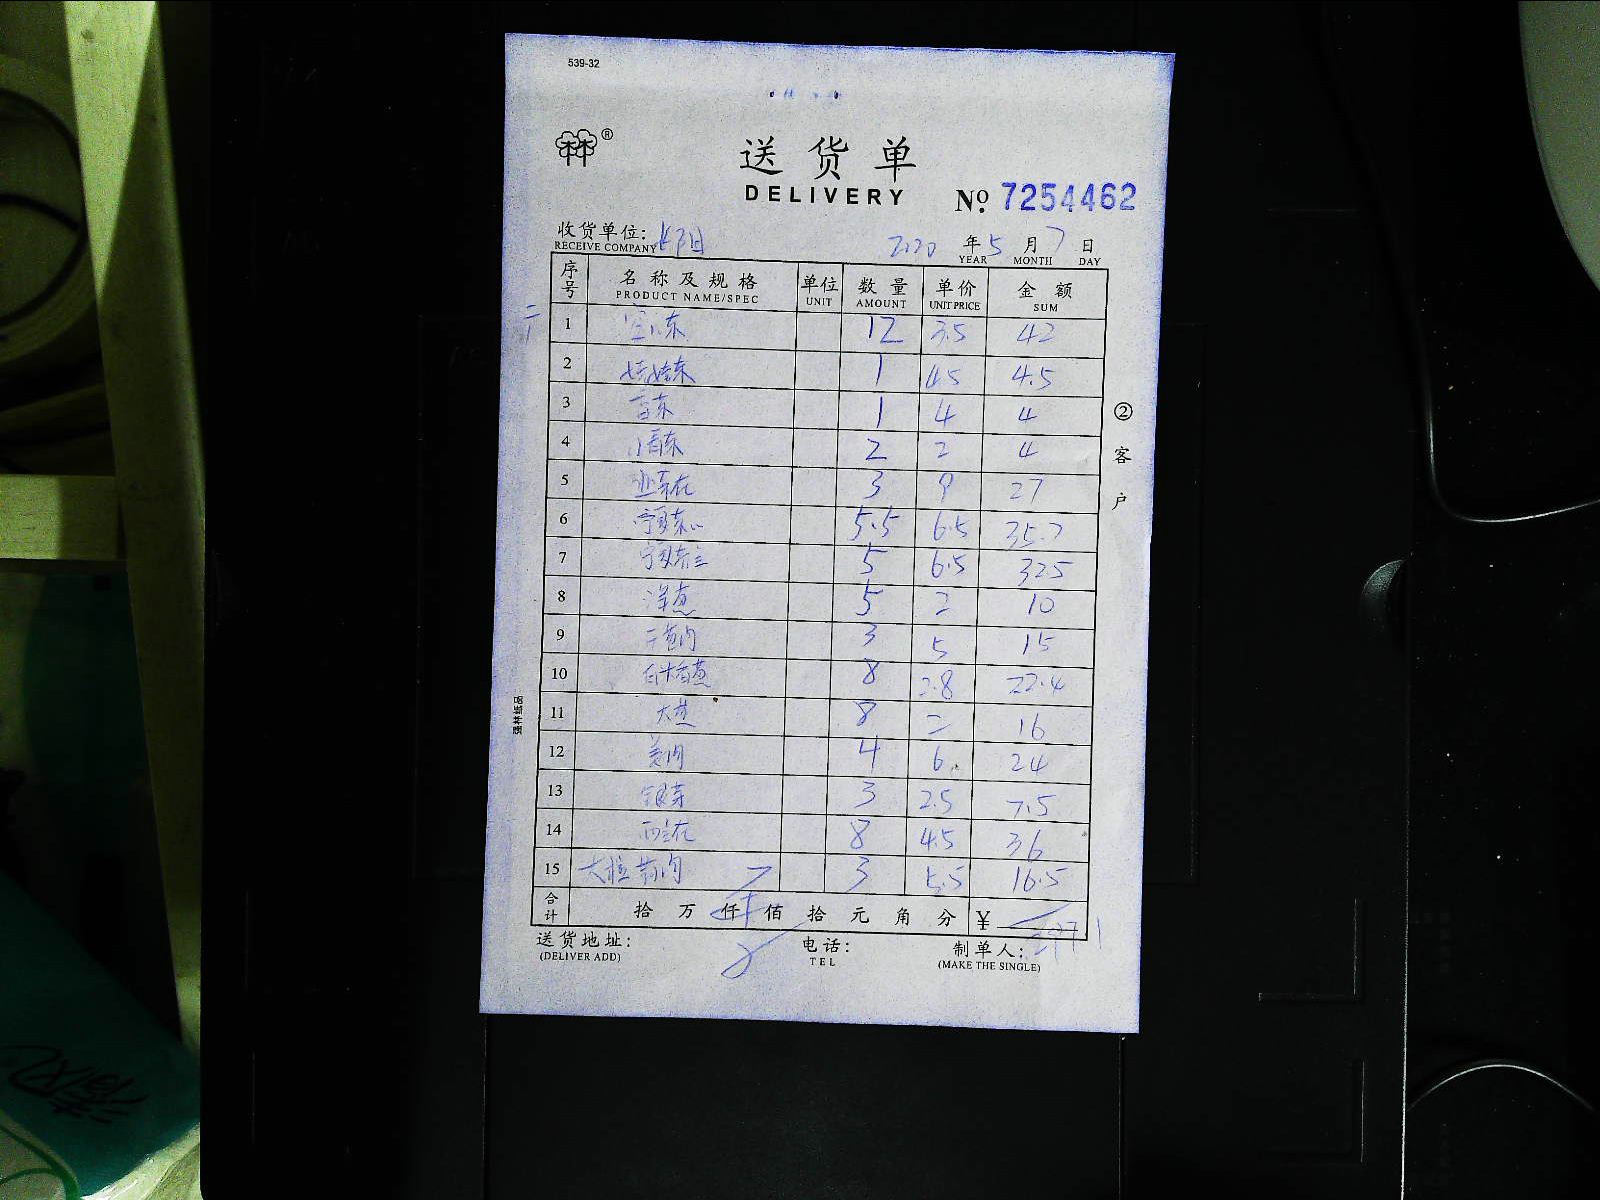 539-32
林®
送货单
DELIVERY
№ 7254462
收货单位: 2020 年 5 月 7 日
RECEIVE COMPANY YEAR MONTH DAY
序号 名称及规格 单位 数量 单价 金额
PRODUCT NAME/SPEC UNIT AMOUNT UNIT PRICE SUM
1 12 3.5 42
2 娃娃菜 1 4.5 4.5
3 1 4 4
4 2 2 4
5 3 9 27
6 宁夏菜心 5.5 6.5 35.7
7 5 6.5 32.5
8 洋葱 5 2 10
9 3 5 15
10 8 2.8 22.4
11 大葱 8 二 16
12 姜肉 4 6 24
13 银芽 3 2.5 7.5
14 西兰花 8 4.5 36
15 大粒蒜肉 3 5.5 16.5
合计 拾 万 仟 佰 拾 元 角 分 ¥ 297.1
送货地址: 电话: 制单人:
(DELIVER ADD) TEL (MAKE THE SINGLE)
②客户
强林纸品